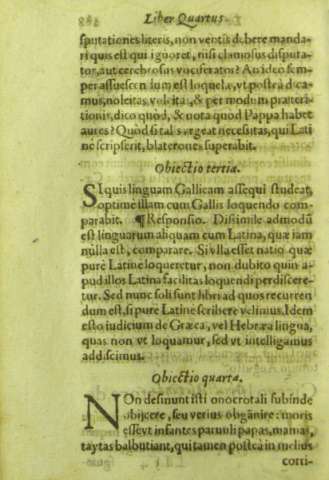 Liber Quartus
sputationes literis, non ventis debere manda-
ri quis est qui ignoret, nisi clamosus disputa-
tor, aut cerebrosus vociferator? An ideo sem-
per assuescen um est loquelæ, vt postea dica-
mus, noleitas, voleitas, & per modum præteri-
tionis, dico quòd, & nota quod Pappa habet
aures? Quòd si tal s vrgeat necessitas, qui Lati
ne scripserit, blaterones superabit.
Obiectio tertia.
SI quis linguam Gallicam assequi studeat,
optime illam cum Gallis loquendo com-
parabit. ¶ Responsio. Dissimile admodū
est linguarum aliquam cum Latina, quæ iam
nulla est, comparare. Si vlla esset natio quæ
pure Latine loqueretur, non dubito quin a-
pud illos Latina facilitas loquendi perdiscere-
tur. Sed nunc soli sunt libri ad quos recurren
dum est, si pure Latine scribere velimus. Idem
esto iudicium de Græca, vel Hebræa lingua,
quas non vt loquamur, sed vt intelligamus
addiscimus.
Obiectio quarta.
NOn desinunt isti onocrotali subinde
obijcere, seu verius obgānire: moris
esse vt infantes paruuli papas, mamas,
taytas balbutiant, qui tamen postea in melius
corri-